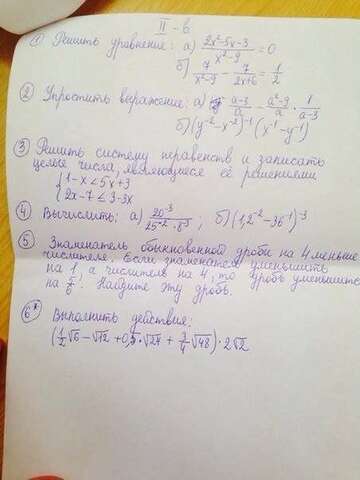 II - в
① Решить уравнение: а) (2x²-5x-3)/(x²-9) = 0
б) 7/(x²-9) - 7/(2x+6) = 1/2
② Упростить выражение: а) (a-3)/a - (a²-9)/a · 1/(a-3)
б) (y⁻²-x⁻²)⁻¹ (x⁻¹-y⁻¹)
③ Решить систему неравенств и записать
целые числа, являющиеся её решениями
{ 1-x < 5x+3
2x-7 ≤ 3-3x
④ Вычислить: а) 20⁻³/(25⁻²·8³) ; б) (1,2⁻²-36⁻¹)⁻³
⑤ Знаменатель обыкновенной дроби на 4 меньше
числителя. Если знаменатель уменьшить
на 1, а числитель на 4, то дробь уменьшится
на 7/6. Найдите эту дробь.
⑥* Выполнить действия:
(1/2√6 - √12 + 0,5·√27 + 3/4√48) · 2√2